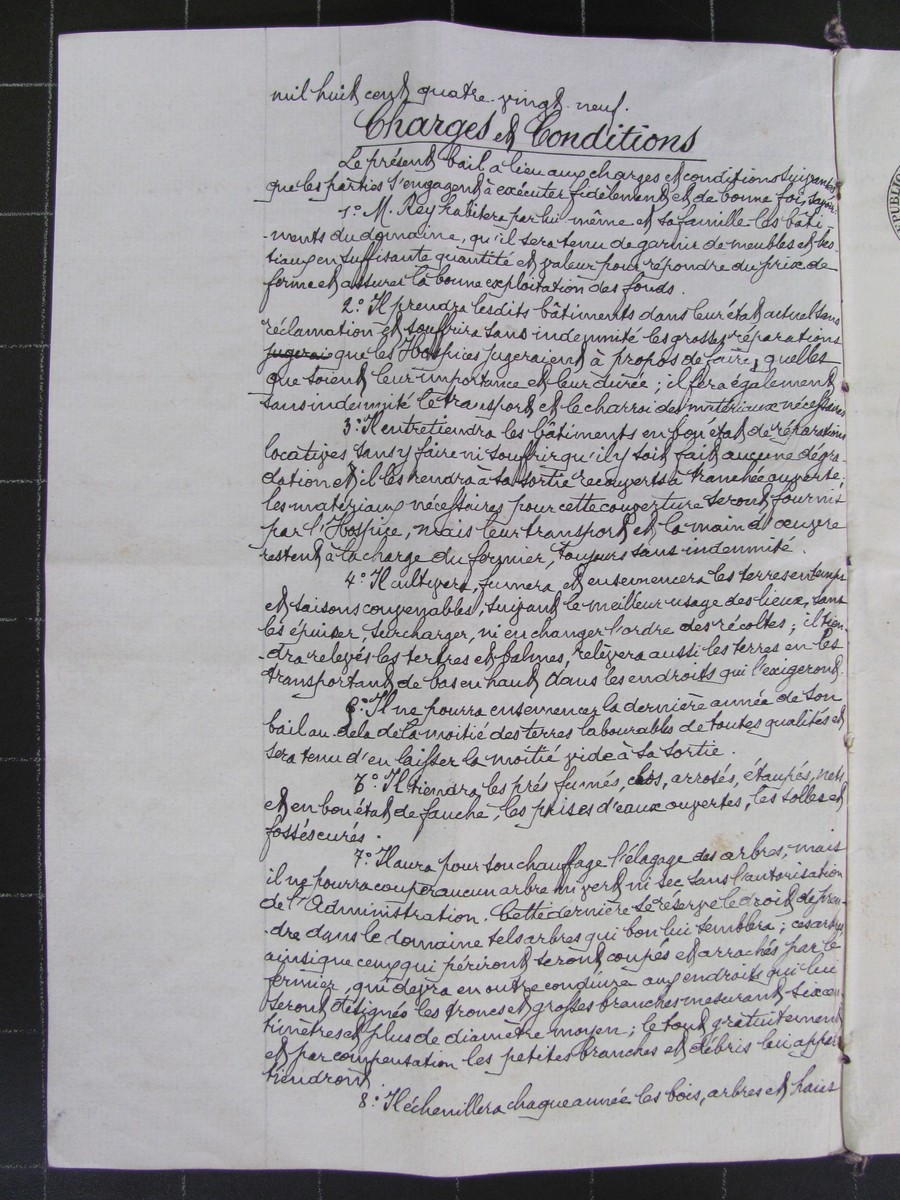 mil huit cent quatre-vingt-neuf.
Charges et Conditions
Le présent bail a lieu aux charges et conditions suivantes
que les parties s'engagent à exécuter fidèlement et de bonne foi, savoir:
1° M. Rey habitera par lui même et sa famille les bâti-
-ments du domaine, qu'il sera tenu de garnir de meubles et bes
tiaux en suffisante quantité et valeur pour répondre du prix de
ferme et assurer la bonne exploitation des fonds.
2° Il prendra lesdits bâtiments dans leur état actuel sans
réclamation et souffrira sans indemnité les grosses réparations
jugerai que les Hospices jugeraient à propos de faire, quelles
que soient leur importance et leur durée; il fera également
sans indemnité le transport et le charroi des matériaux nécessaires
3° Il entretiendra les bâtiments en bon état de réparations
locatives sans y faire ni souffrir qu'il y soit fait aucune dégra-
dation et il les rendra à sa sortie recouverts à tranchée ouverte;
les matériaux nécessaires pour cette couverture seront fournis
par l'Hospice, mais leur transport et la main d'œuvre
restent à la charge du fermier, toujours sans indemnité.
4° Il cultivera, fumera et ensemencera les terres en temps
et saisons convenables, suivant le meilleur usage des lieux, sans
les épuiser, surcharger, ni en changer l'ordre des récoltes; il tien-
-dra relevés les tertres et balmes, relèvera aussi les terres en les
transportant de bas en haut dans les endroits qui l'exigeront.
5° Il ne pourra ensemencer la dernière année de son
bail au-delà de la moitié des terres labourables de toutes qualités et
sera tenu d'en laisser la moitié vide à sa sortie.
6° Il tiendra les prés fumés, clos, arrosés, étaupés, nets
et en bon état de fauche, les prises d'eaux ouvertes, les solles et
fossés curés.
7° Il aura pour son chauffage l'élagage des arbres, mais
il ne pourra couper aucun arbre ni vert ni sec sans l'autorisation
de l'Administration. Cette dernière se réserve le droit de pren-
-dre dans le domaine tels arbres qui bon lui semblera; ces arbres
ainsi que ceux qui périront seront coupés et arrachés par le
fermier, qui devra en outre conduire aux endroits qui lui
seront désignés les troncs et grosses branches mesurant six cen-
timètres et plus de diamètre moyen; le tout gratuitement
et par compensation les petites branches et débris lui appar
tiendront.
8° Il échenillera chaque année les bois, arbres et haies